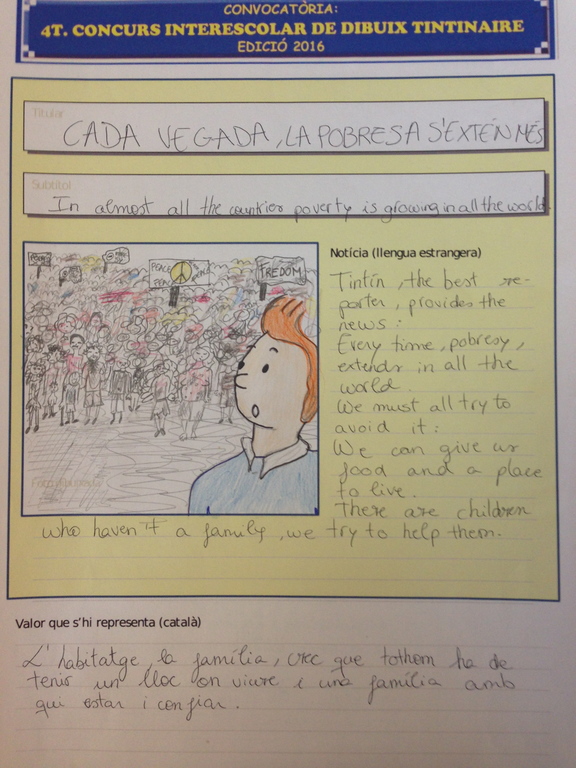 CONVOCATÒRIA:
4T. CONCURS INTERESCOLAR DE DIBUIX TINTINAIRE
EDICIÓ 2016
Titular
CADA VEGADA, LA POBRESA S'EXTÉN MÉS
Subtítol
In almost all the countries poverty is growing in all the world.
PEACE
PEACE
PEACE
FREDOM
Notícia (llengua estrangera)
Tintín, the best re-
porter, provides the
news:
Every time, pobresy,
extends in all the
world.
We must all try to
avoid it:
We can give us
food and a place
to live.
There are children
who haven't a family, we try to help them.
Valor que s'hi representa (català)
L'habitatge, la família, crec que tothom ha de
tenir un lloc on viure i una família amb
qui estar i confiar.